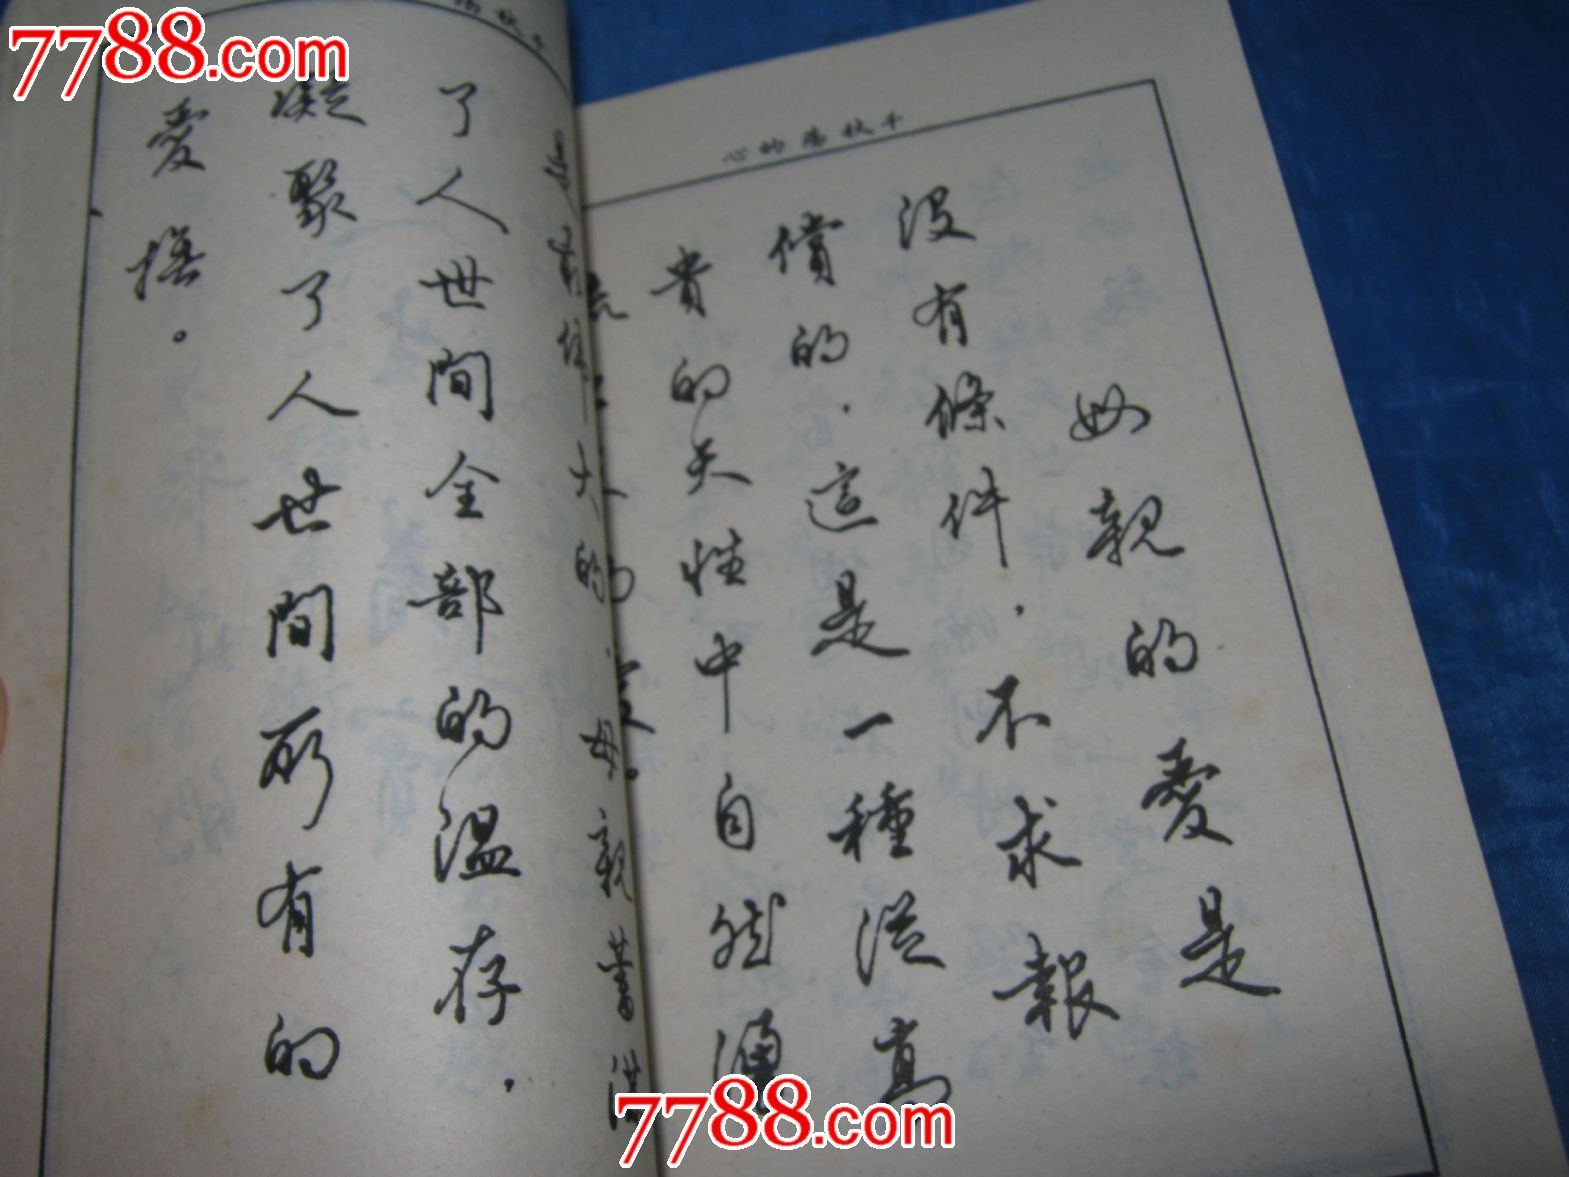 心的秋千
母親的愛是
沒有條件，不求報
償的，這是一種從真
貴的天性中自然
愛。
大的，母親蓄滿
了人世間全部的溫存，
凝聚了人世間所有的
愛撫。
7788.com
7788.com